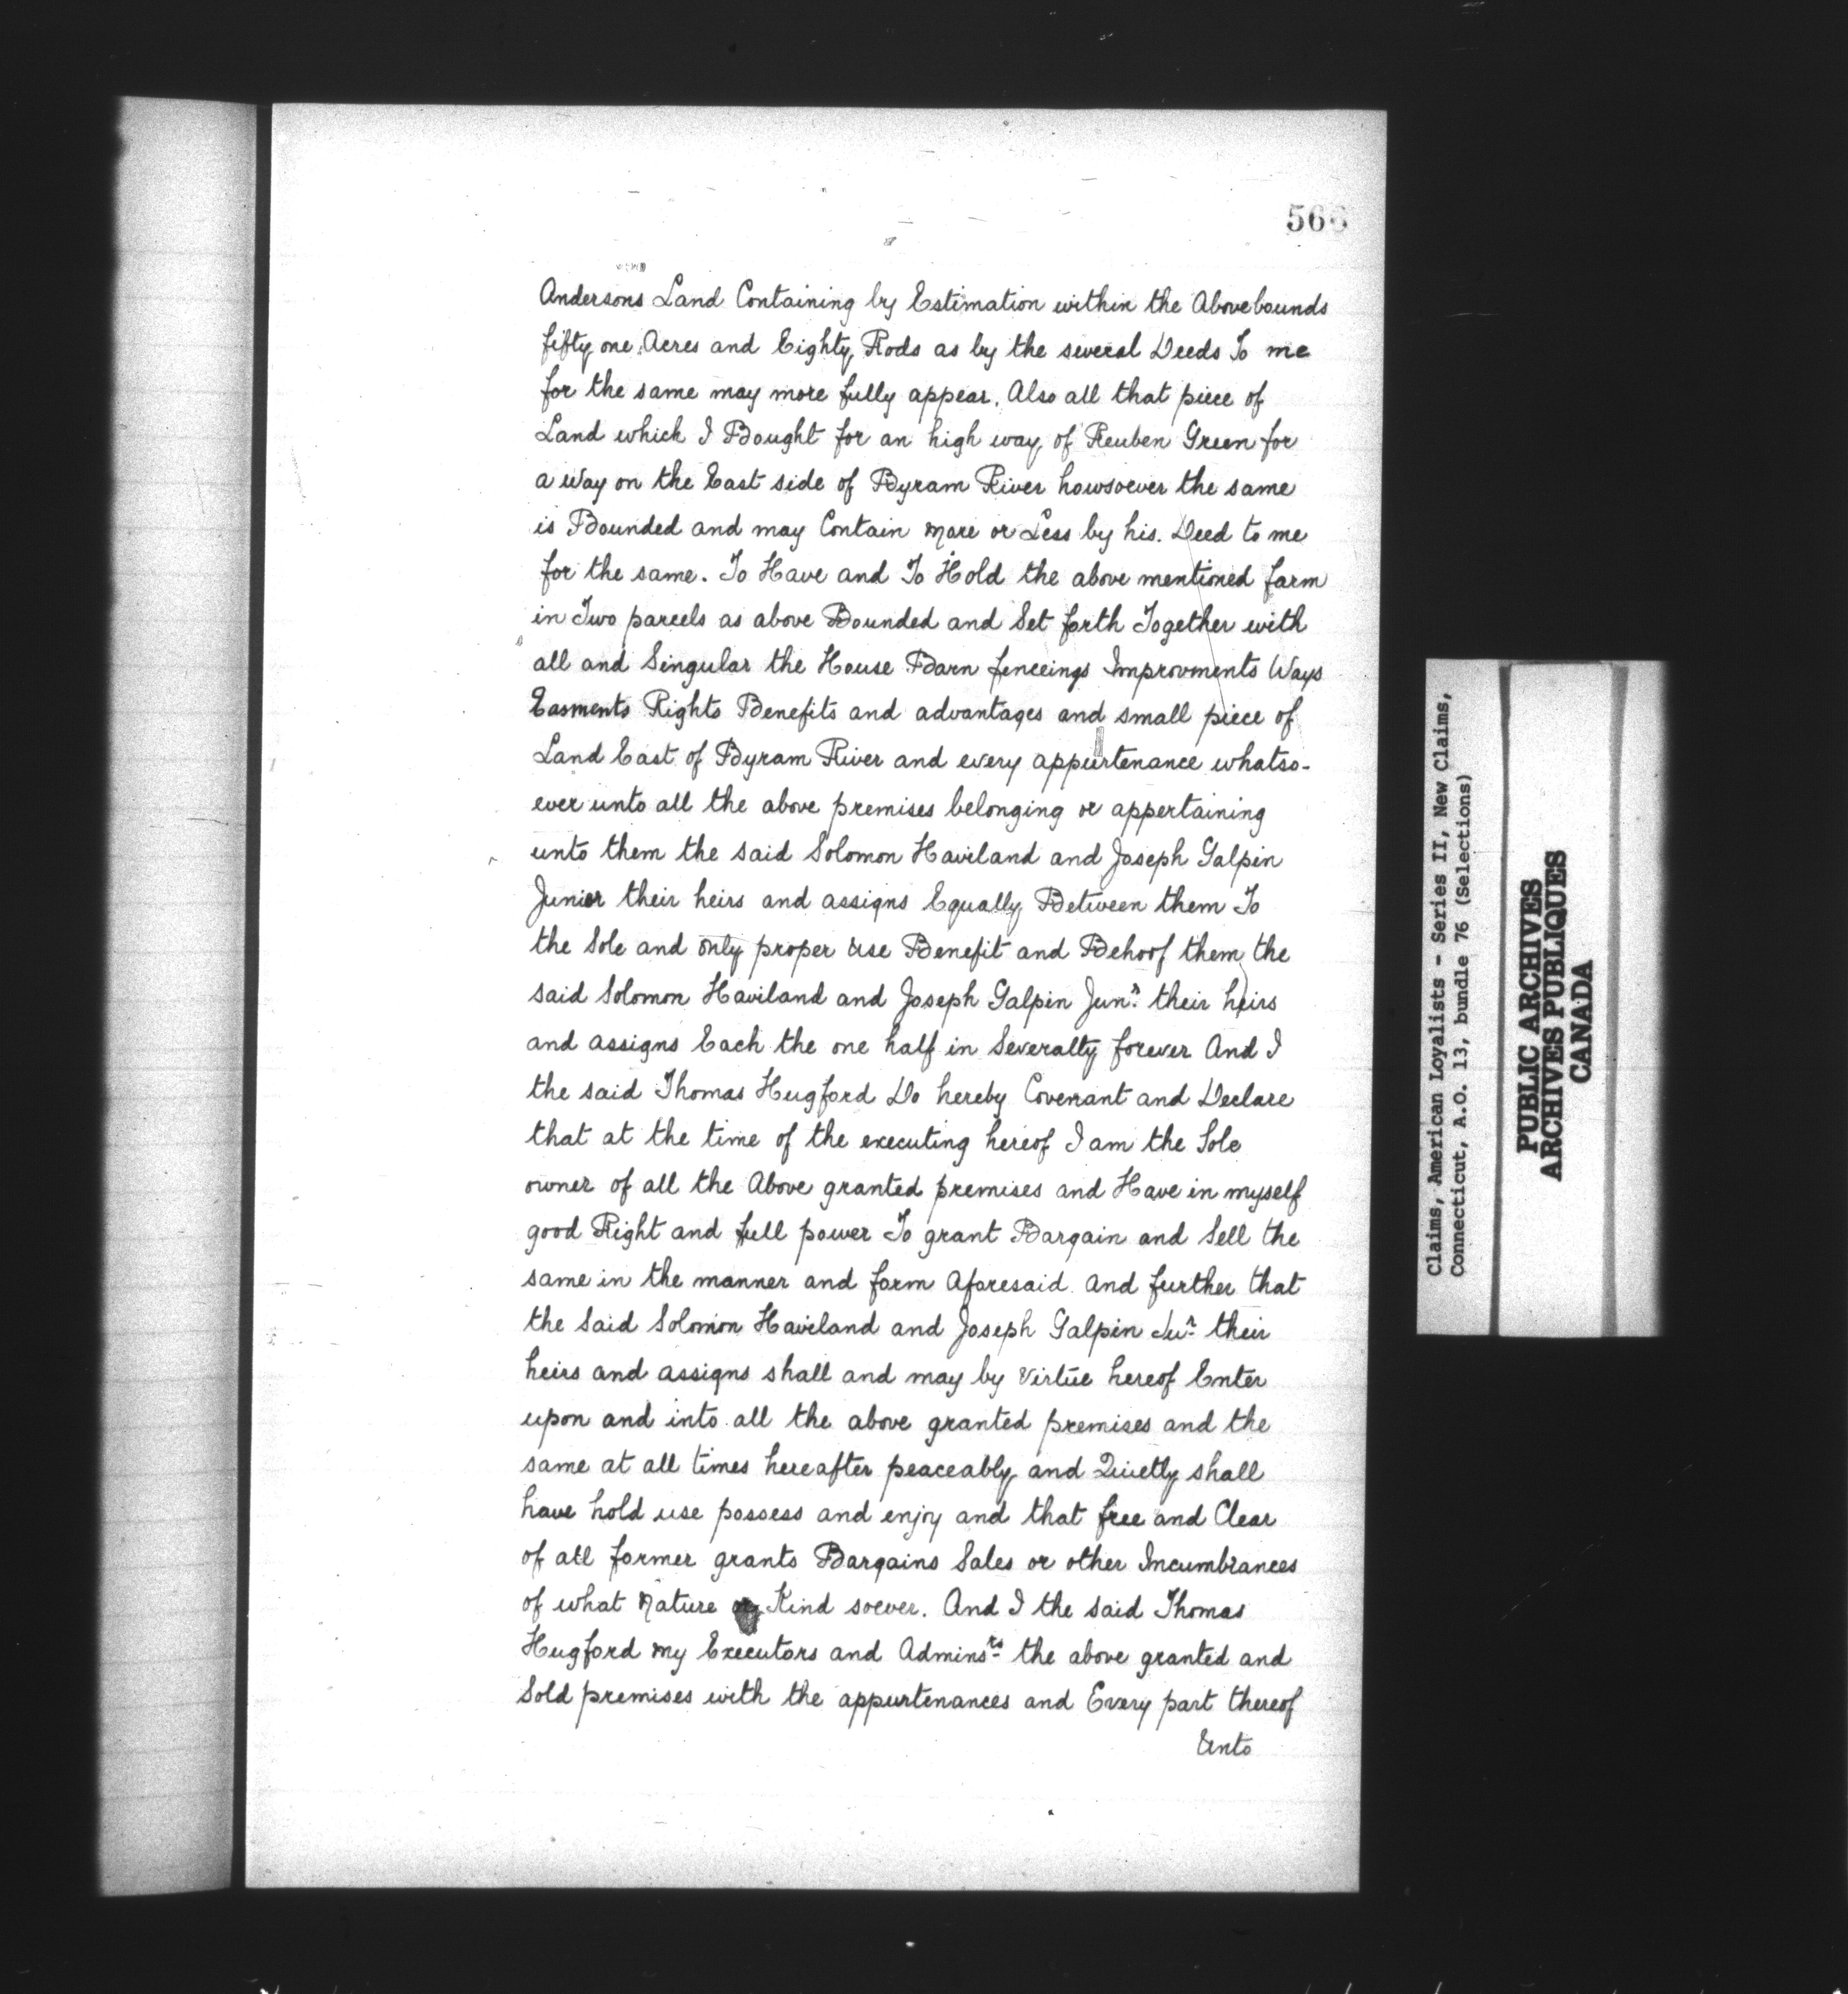 566
Andersons Land Containing by Estimation within the Above bounds
fifty one Acres and Eighty Rods as by the several Deeds To me
for the same may more fully appear. Also all that piece of
Land which I Bought for an high way of Reuben Green for
a Way on the East side of Byram River howsoever the same
is Bounded and may Contain More or Less by his. Deed to me
for the same. To Have and To Hold the above mentioned farm
in Two parcels as above Bounded and Set forth Together with
all and Singular the House Barn fenceings Improvments Ways
Easments Rights Benefits and advantages and small piece of
Land East of Byram River and every appurtenance whatso-
ever unto all the above premises belonging or appertaining
unto them the said Solomon Haviland and Joseph Galpin
Junior their heirs and assigns Equally Between them To
the Sole and only proper Use Benefit and Behoof them the
said Solomon Haviland and Joseph Galpin Junr. their heirs
and assigns Each the one half in Severalty forever And I
the said Thomas Hugford Do hereby Covenant and Declare
that at the time of the executing hereof I am the Sole
owner of all the Above granted premises and Have in myself
good Right and full power To grant Bargain and Sell the
same in the manner and form Aforesaid And further that
the Said Solomon Haviland and Joseph Galpin Jur. their
heirs and assigns shall and may by Virtue hereof Enter
upon and into all the above granted premises and the
same at all times hereafter peaceably and Quietly shall
have hold use possess and enjoy and that free and Clear
of all former grants Bargains Sales or other Incumbrances
of what Nature or Kind soever. And I the said Thomas
Hugford My Executors and Adminsrs the above granted and
Sold premises with the appurtenances and Every part thereof
Unto
Claims, American Loyalists - Series II, New Claims,
Connecticut, A.O. 13, bundle 76 (Selections)
PUBLIC ARCHIVES
ARCHIVES PUBLIQUES
CANADA